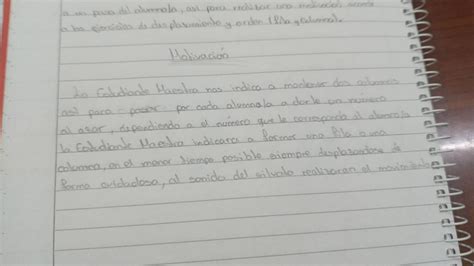 a un paso del alumno/a, así para realizar una motivación acorde
a los ejercicios de desplazamiento y orden (fila y columna).
Motivación
La Estudiante Maestra nos indica a mantener dos columnas
así para pasar por cada alumno/a a darle un número
al asar, dependiendo a el número que le corresponda al alumno/a
la Estudiante Maestra indicara a formar una fila o una
columna, en el menor tiempo posible siempre desplazandose de
forma cuidadosa, al sonido del silvato realizaran el movimiento